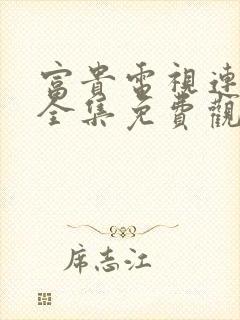 富貴電視連
全集免費觀
席志江